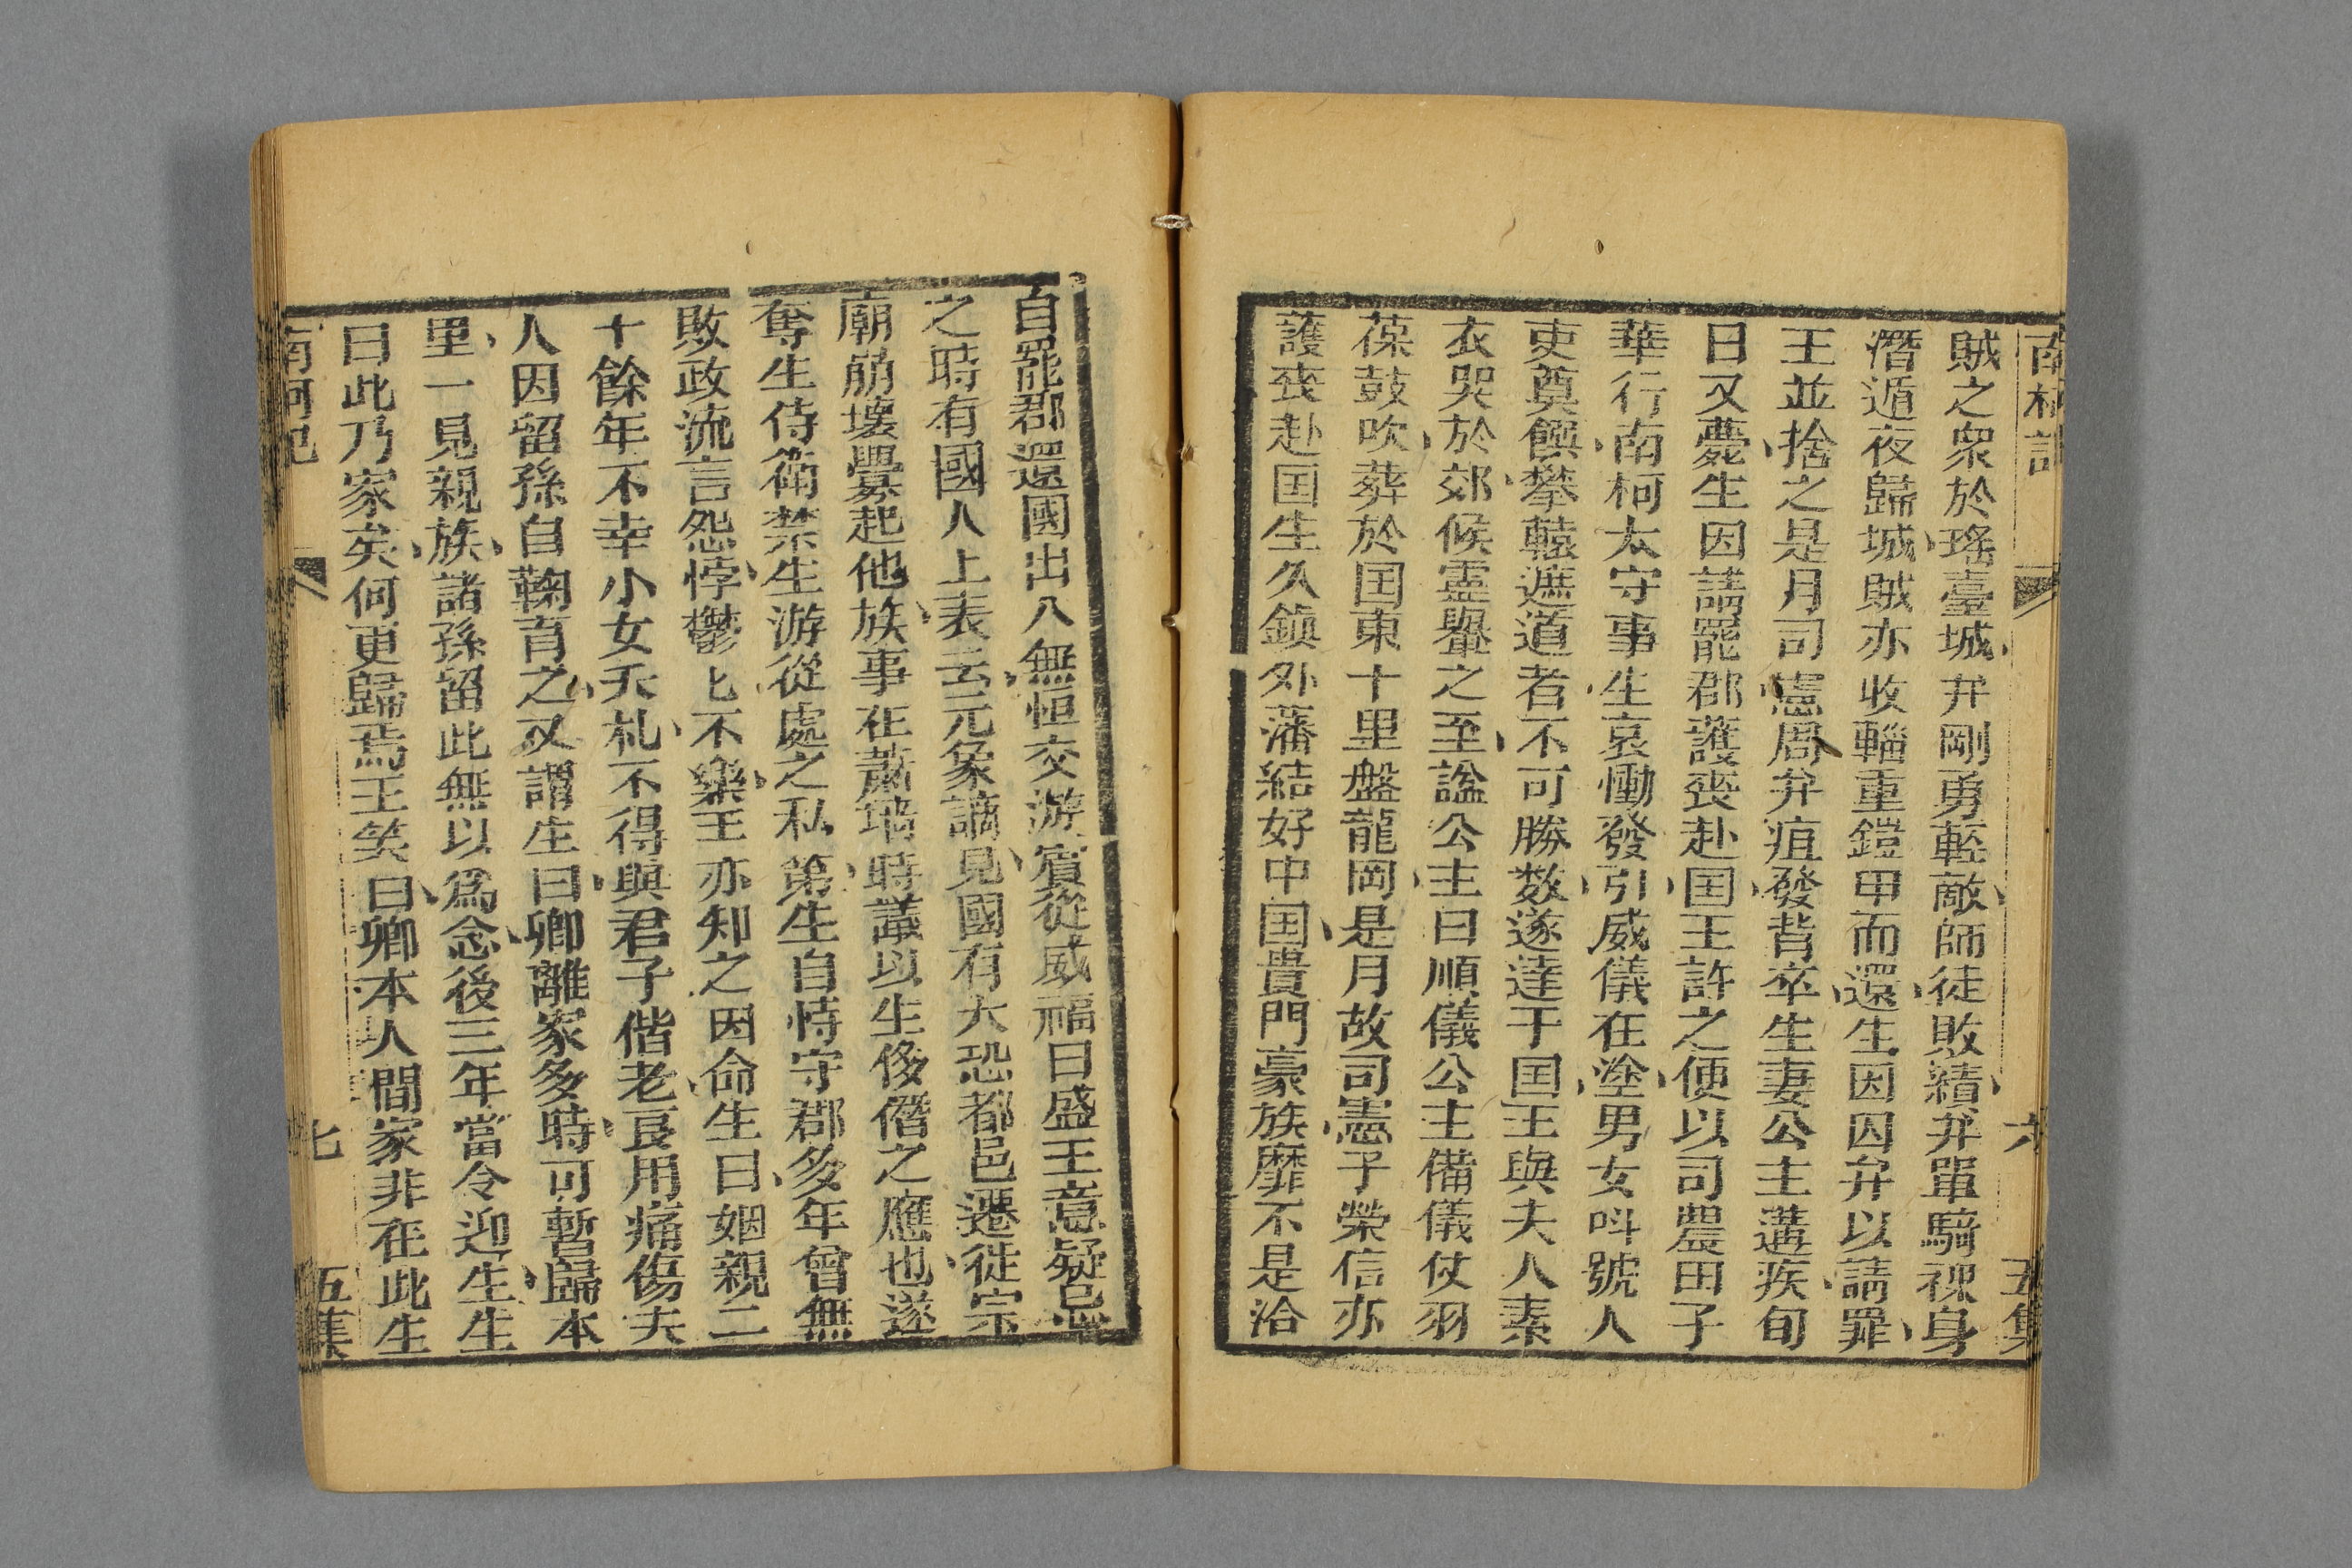 南柯記 六 五集
賊之衆於瑤臺城弁剛勇輕敵師徒敗績弁單騎裸身
潛遁夜歸城賊亦收輜重鎧甲而還生因囚弁以請罪
王並捨之是月司憲周弁疽發背卒生妻公主遘疾旬
日又薨生因請罷郡護喪赴国王許之便以司農田子
華行南柯太守事生哀慟發引威儀在塗男女呌號人
吏奠饌攀轅遮道者不可勝数遂達于国王與夫人素
衣哭於郊候霊轝之至諡公主曰順儀公主備儀仗羽
葆鼓吹葬於国東十里盤龍岡是月故司憲子榮信亦
護喪赴国生久鎮外藩結好中国貴門豪族靡不是洽
自罷郡還國出入無恒交游賓從威福日盛王意疑忌
之時有國人上表云元象謫見國有大恐都邑遷徙宗
廟崩壊釁起他族事在蕭墻時議以生侈僭之應也遂
奪生侍衛禁生游從處之私第生自恃守郡多年曾無
敗政流言怨悖鬱匕不樂王亦知之因命生曰姻親二
十餘年不幸小女夭札不得與君子偕老良用痛傷夫
人因留孫自鞠育之又謂生曰卿離家多時可暫歸本
里一見親族諸孫留此無以為念後三年當令迎生生
曰此乃家矣何更歸焉王笑曰卿本人間家非在此生
南柯記 七 五集